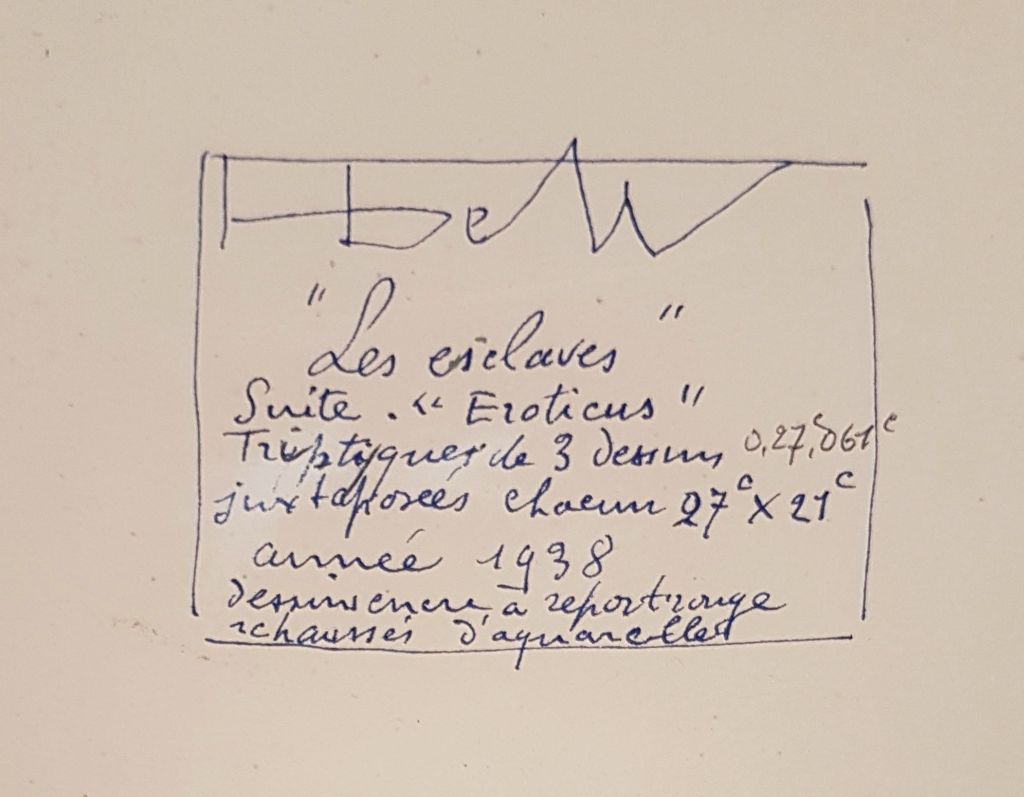 " Les esclaves "
Suite . " Eroticus "
Triptyques de 3 dessins 0,27,
juxtaposés chacun 27c X 21c
année 1938
dessins encre à report rouge
rehaussés d'aquarelles